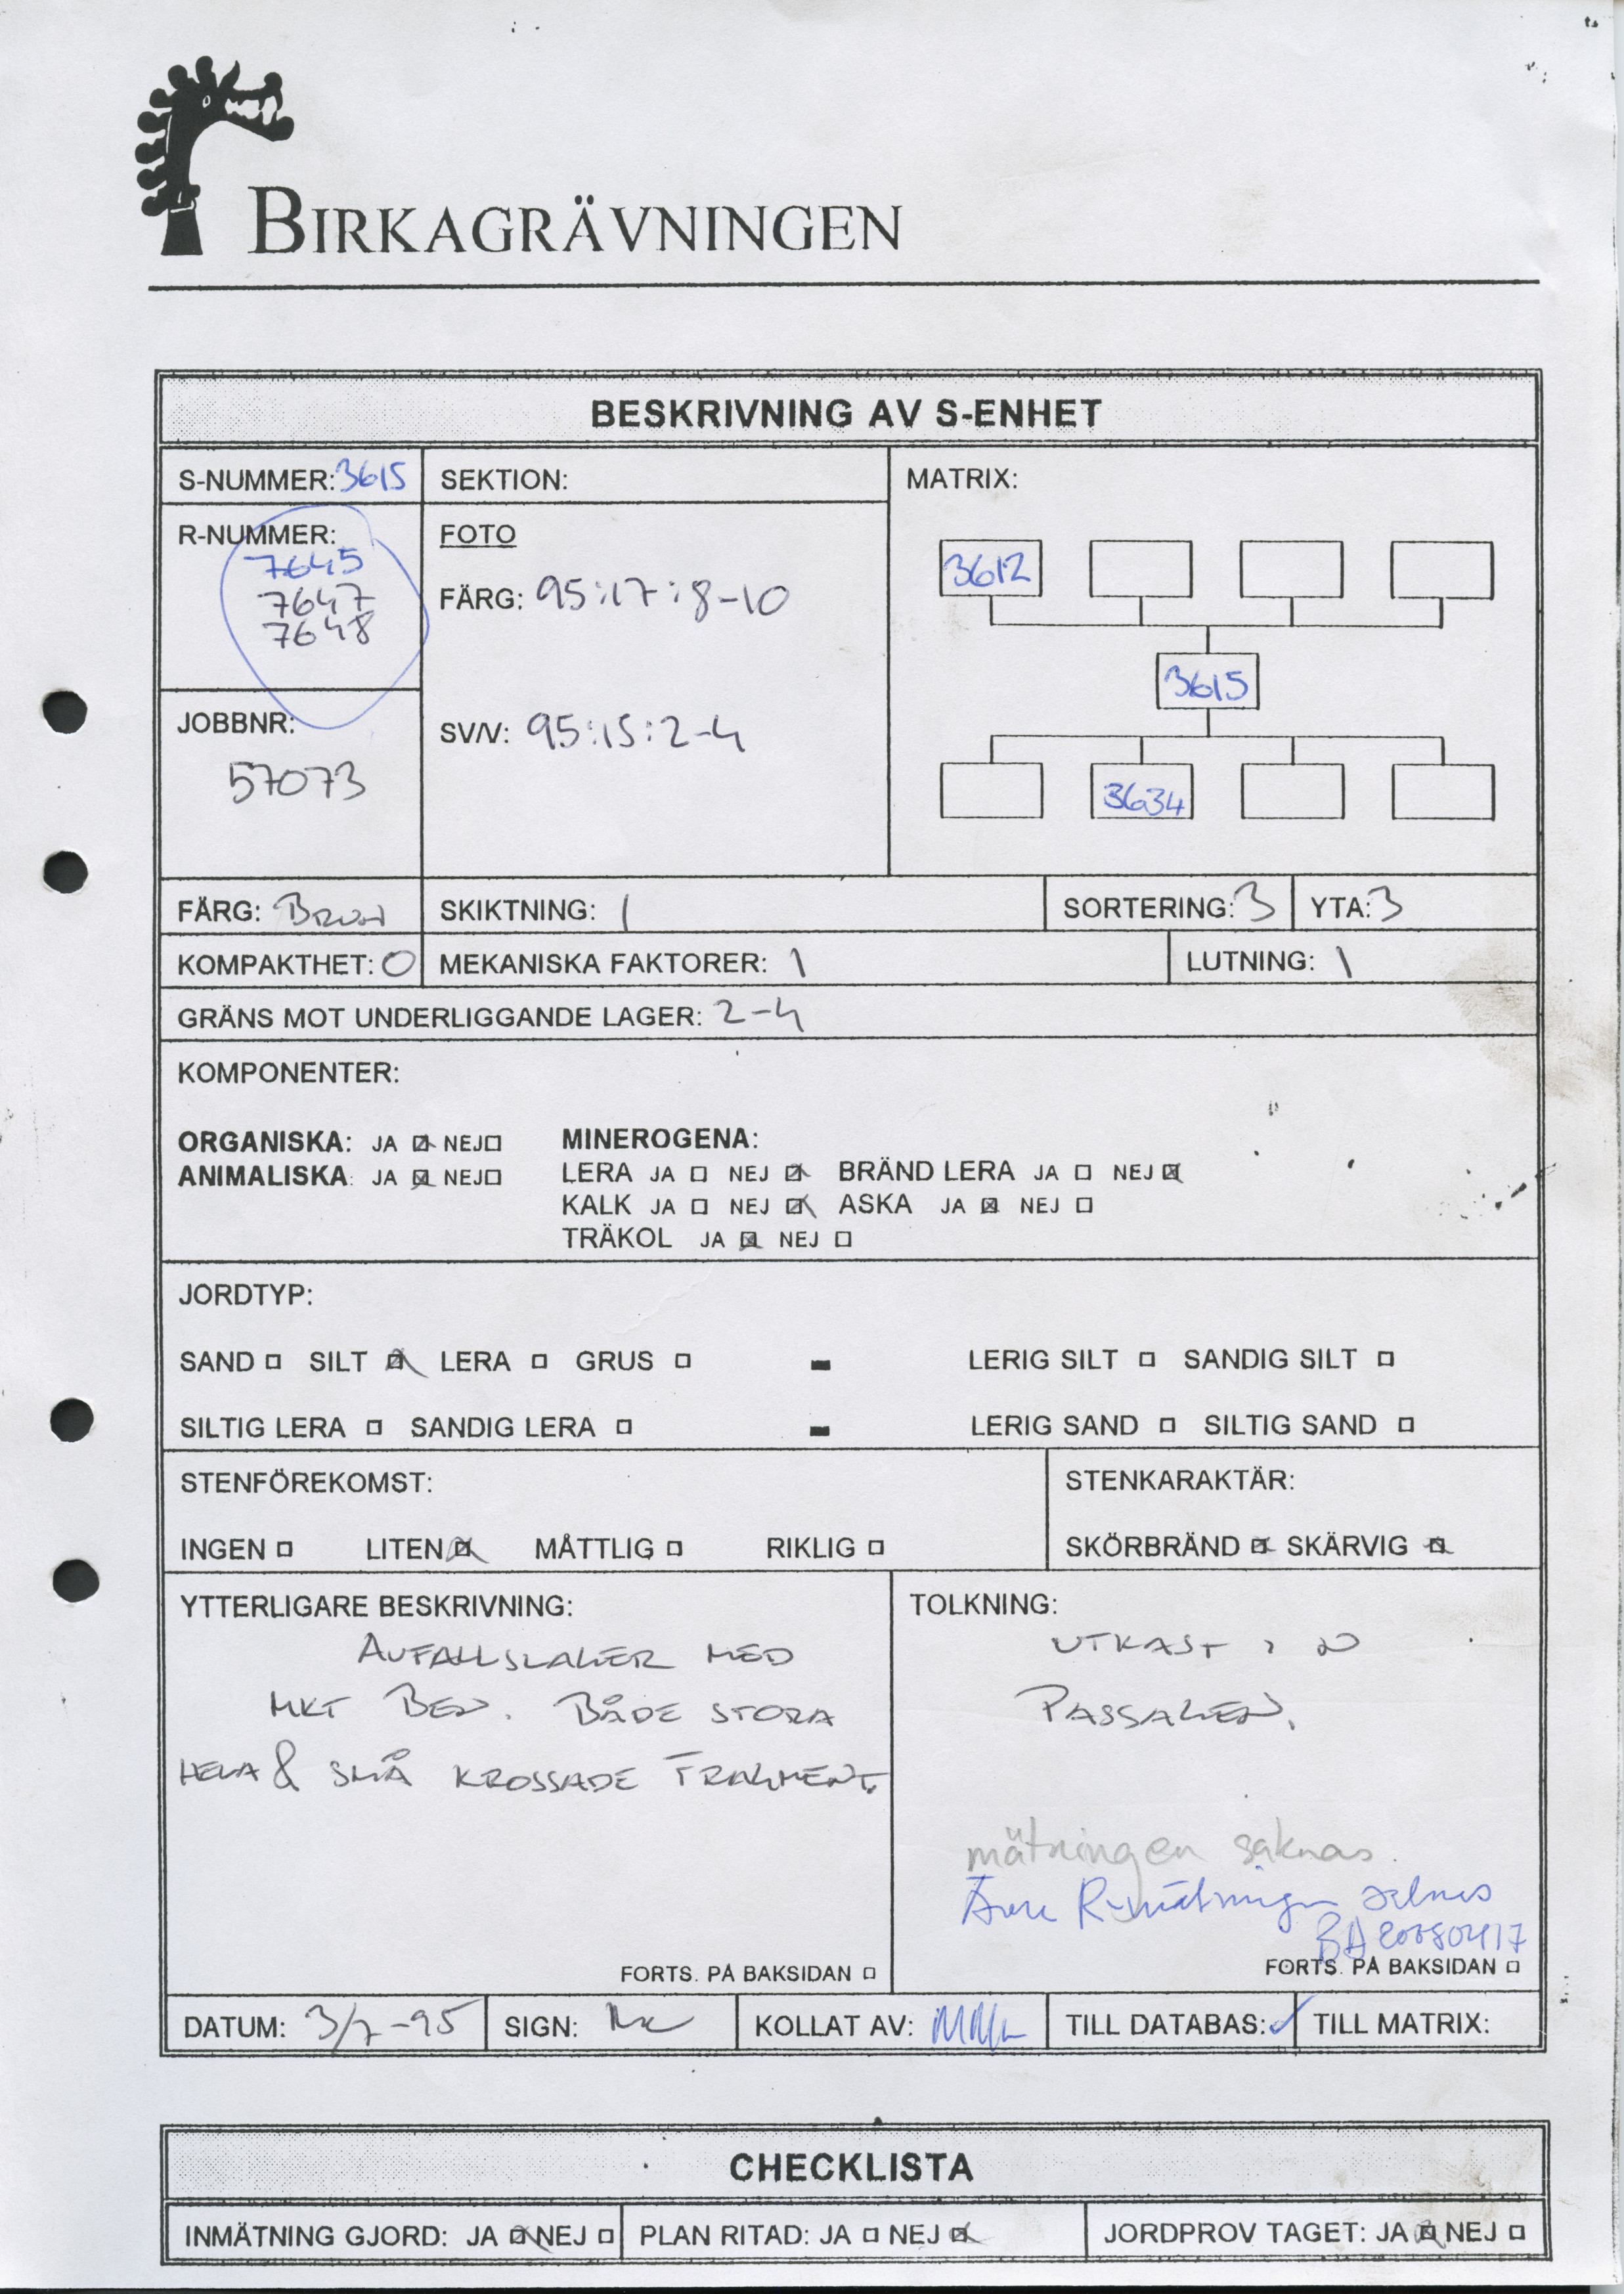 BIRKAGRÄVNINGEN
BESKRIVNING AV S-ENHET
S-NUMMER: 3615
SEKTION:
MATRIX:
R-NUMMER:
7645
7647
7648
FOTO
FÄRG: 95:17:8-10
SV/V: 95:15:2-4
3612
3615
3634
JOBBNR:
57073
FÄRG: BRUN
SKIKTNING: 1
SORTERING: 3
YTA: 3
KOMPAKTHET: 0
MEKANISKA FAKTORER: 1
LUTNING: 1
GRÄNS MOT UNDERLIGGANDE LAGER: 2-4
KOMPONENTER:
ORGANISKA: JA ☒ NEJ ☐
ANIMALISKA: JA ☒ NEJ ☐
MINEROGENA:
LERA JA ☐ NEJ ☒ BRÄND LERA JA ☐ NEJ ☒
KALK JA ☐ NEJ ☒ ASKA JA ☒ NEJ ☐
TRÄKOL JA ☒ NEJ ☐
JORDTYP:
SAND ☐ SILT ☒ LERA ☐ GRUS ☐ - LERIG SILT ☐ SANDIG SILT ☐
SILTIG LERA ☐ SANDIG LERA ☐ - LERIG SAND ☐ SILTIG SAND ☐
STENFÖREKOMST:
INGEN ☐ LITEN ☒ MÅTTLIG ☐ RIKLIG ☐
STENKARAKTÄR:
SKÖRBRÄND ☒ SKÄRVIG ☒
YTTERLIGARE BESKRIVNING:
AVFALLSLAGER MED
MKT BEN. BÅDE STORA
HELA & SMÅ KROSSADE FRAGMENT.
FORTS. PÅ BAKSIDAN ☐
TOLKNING:
UTKAST I N
PASSAGEN.
mätningen saknas.
Även R-mätningen saknas
BA 20080417
FORTS. PÅ BAKSIDAN ☐
DATUM: 3/7-95
SIGN:
KOLLAT AV:
TILL DATABAS: ✓
TILL MATRIX:
CHECKLISTA
INMÄTNING GJORD: JA ☒ NEJ ☐
PLAN RITAD: JA ☐ NEJ ☒
JORDPROV TAGET: JA ☒ NEJ ☐